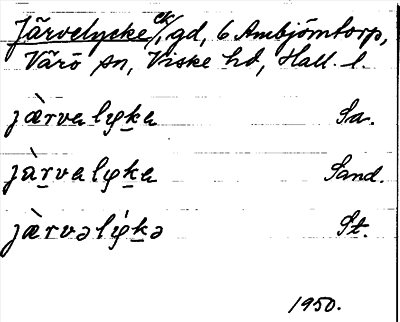 Järvelycke ck/, gd, 6 Ambjörntorp,
Värö sn, Viske hd, Hall. l.
jæ̀rvalyka Sa.
jàrvalyka Sand.
jæ̀rvəlýkə St.
1950.